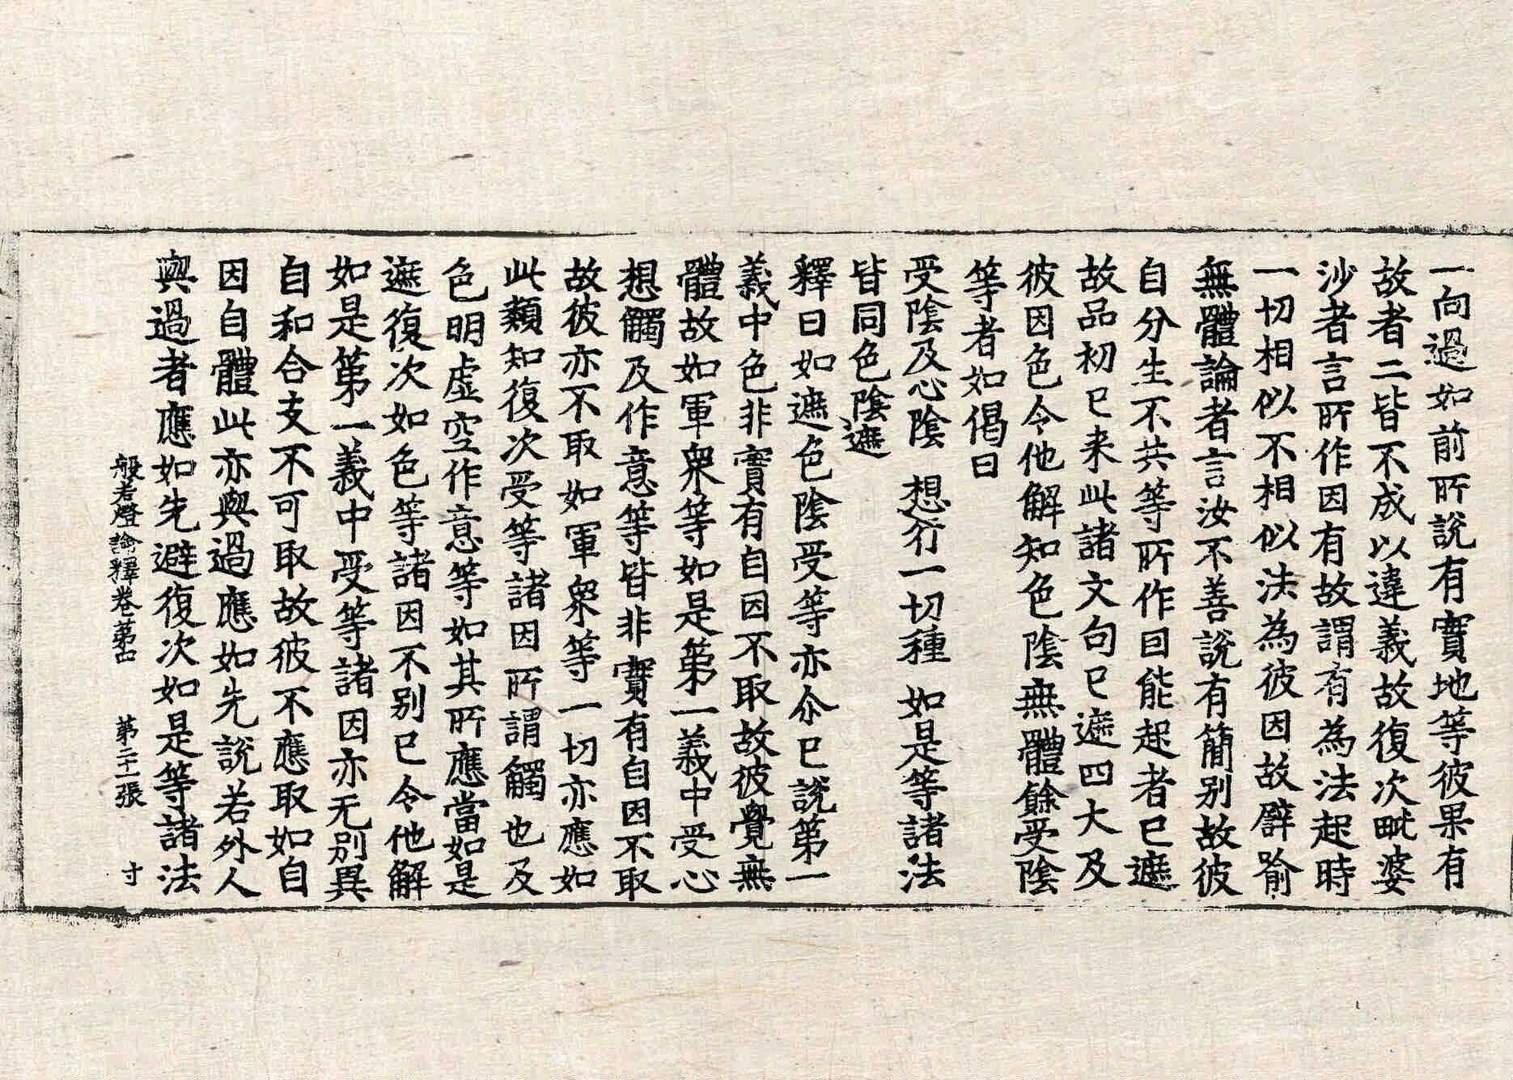 一向過如前所說有實地等彼果有
故者二皆不成以違義故復次毗婆
沙者言所作因有故謂有為法起時
一切相似不相似法為彼因故譬喻
無體論者言汝不善說有簡别故彼
自分生不共等所作因能起者已遮
故品初已来此諸文句已遮四大及
彼因色令他解知色陰無體餘受陰
等者如偈曰
受陰及心陰　想行一切種　如是等諸法
皆同色陰遮
釋曰如遮色陰受等亦尒已說第一
義中色非實有自因不取故彼覺無
體故如軍衆等如是第一義中受心
想觸及作意等皆非實有自因不取
故彼亦不取如軍衆等一切亦應如
此類知復次受等諸因所謂觸也及
色明虚空作意等如其所應當如是
遮復次如色等諸因不别已令他解
如是第一義中受等諸因亦无別異
自和合支不可取故彼不應取如自
因自體此亦與過應如先說若外人
與過者應如先避復次如是等諸法
般若燈論釋卷第四　第二十張　寸